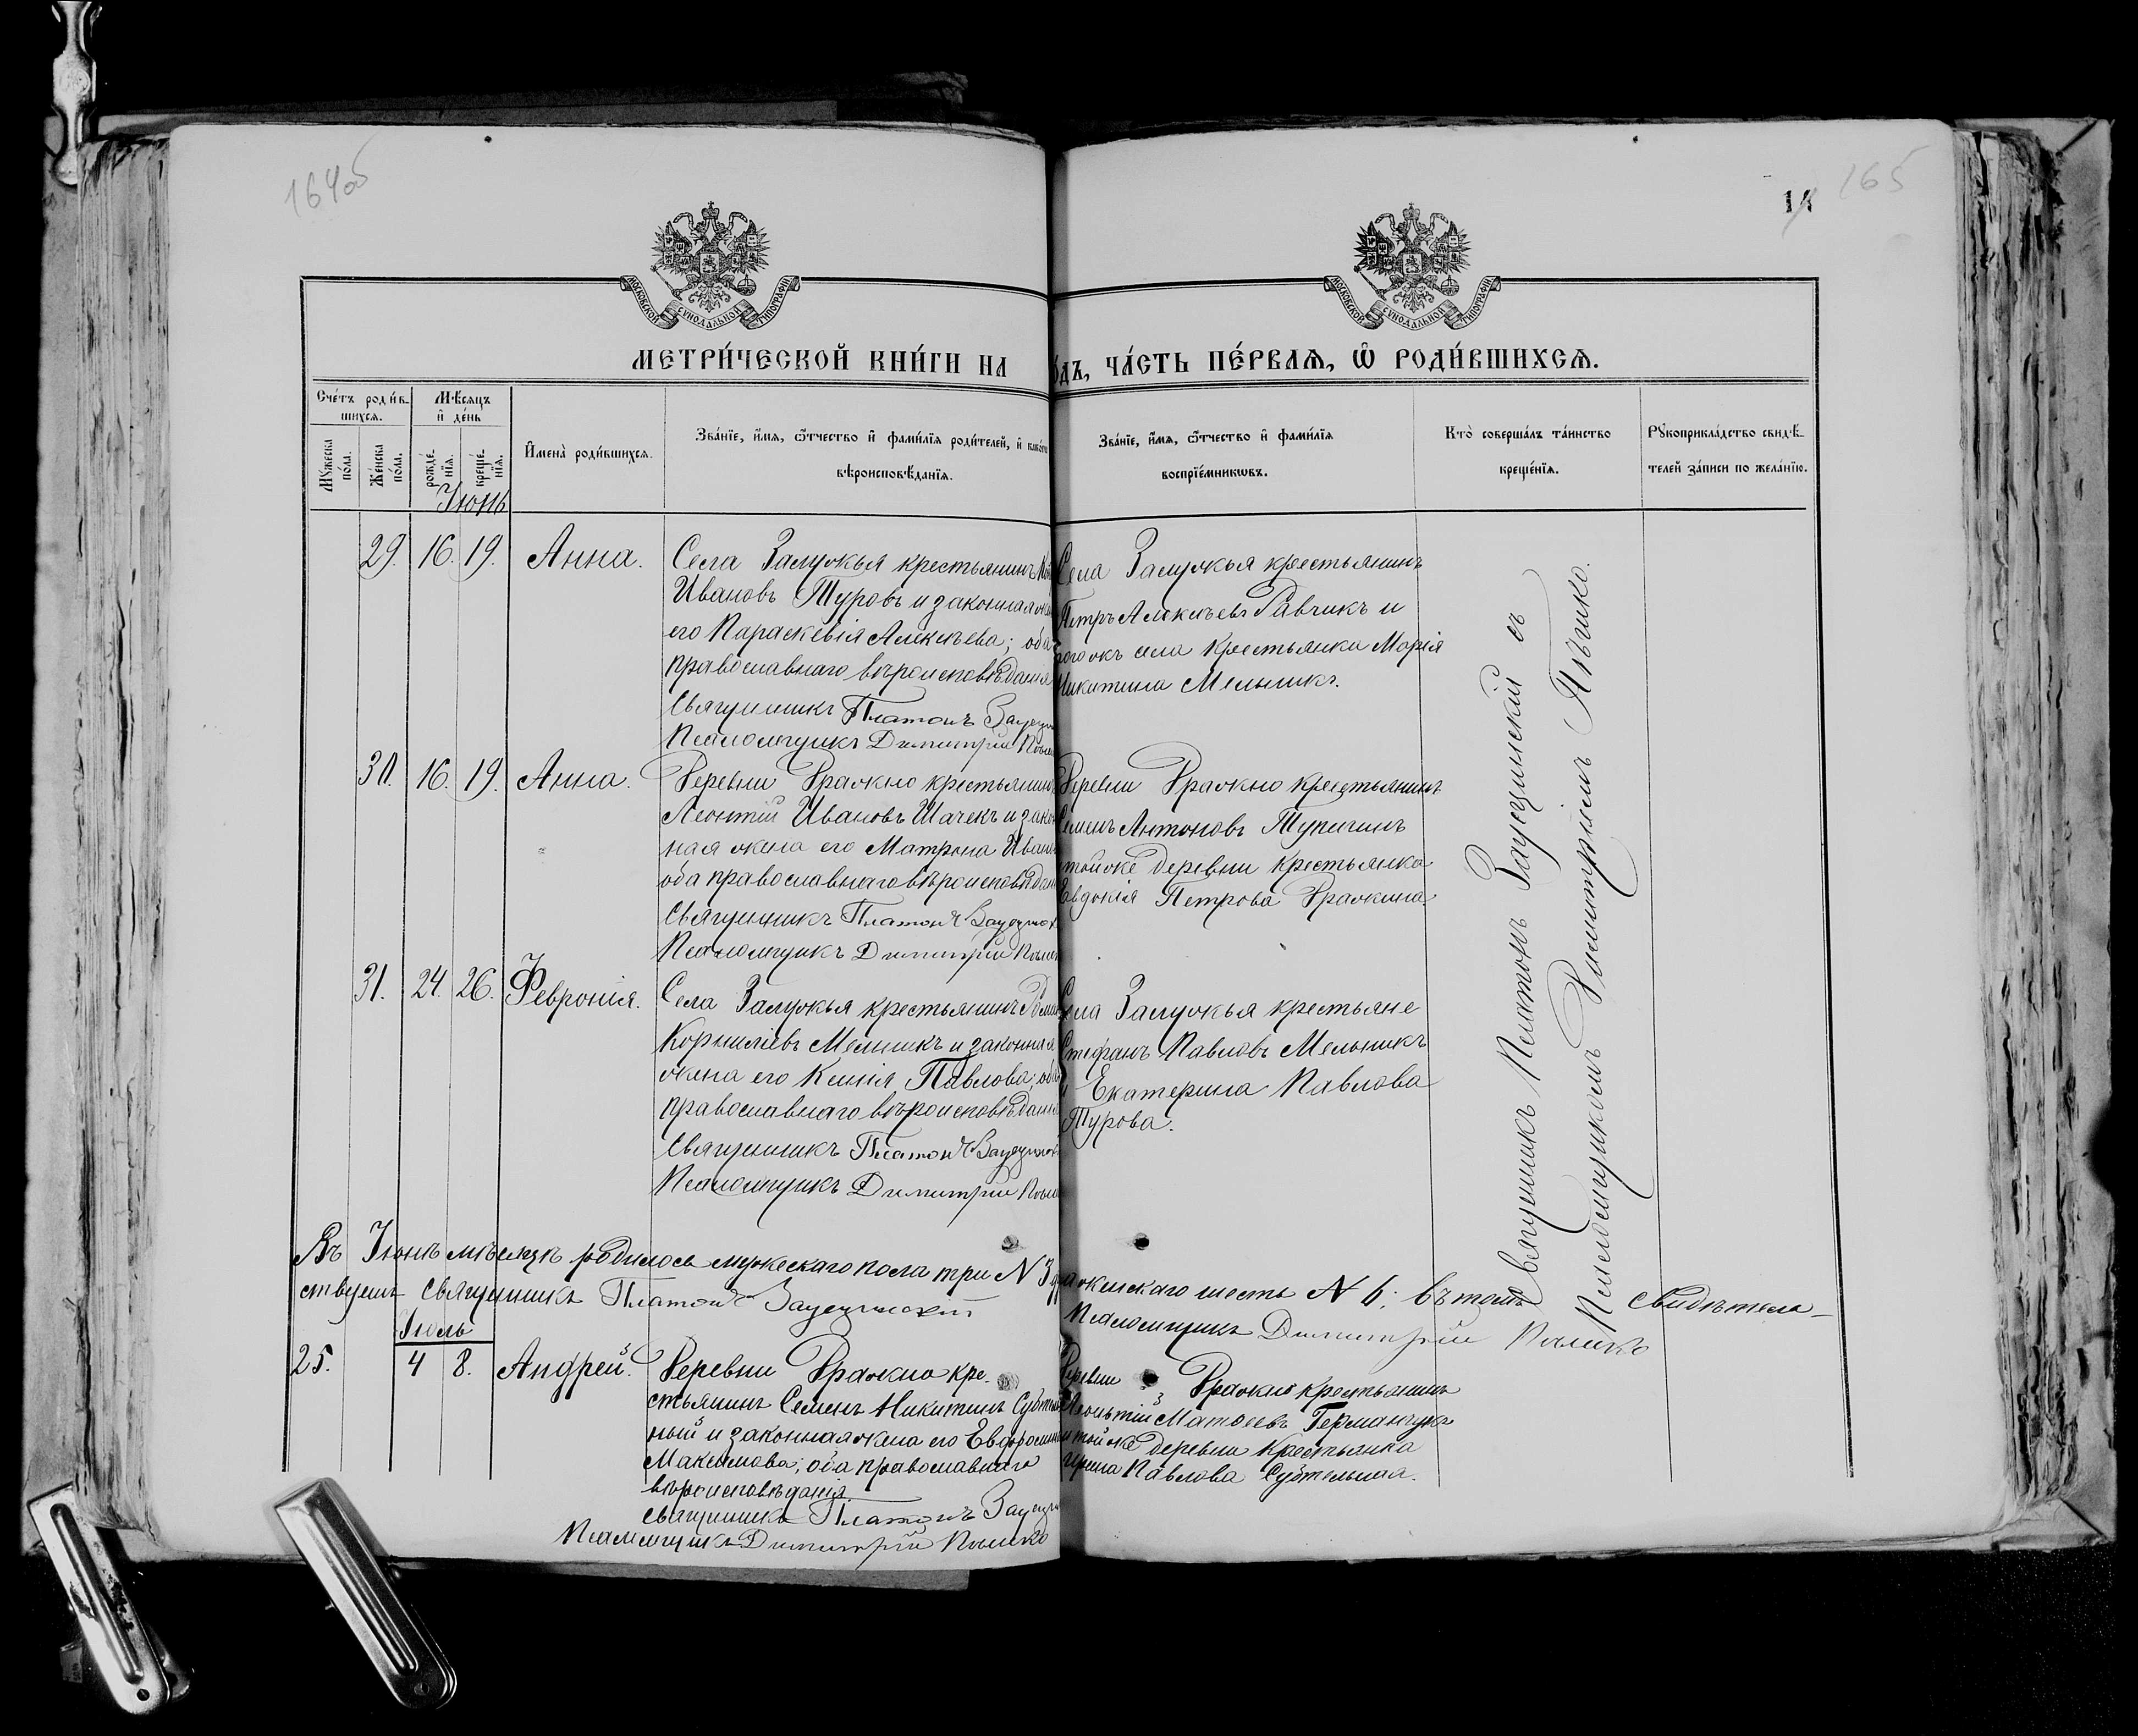 164об
165
МОСКОВСКОЙ СѴНОДАЛЬНОЙ ТИПОГРАФІИ
МОСКОВСКОЙ СѴНОДАЛЬНОЙ ТИПОГРАФІИ
МЕТРИ́ЧЕСКОЙ КНИ́ГИ НА
ДЪ, ЧА́СТЬ ПЕ́РВАѦ, Ѿ РОДИ́ВШИХСѦ.
Сче́тъ роди́в-
шихсѧ.
Мꙋ́жеска по́ла.
Же́нска по́ла.
Мѣ́сѧцъ
и҆ де́нь
рожде́-
нїѧ.
креще́-
нїѧ.
И҆мена̀ роди́вшихсѧ.
Зва́нїе, и҆́мѧ, ѻ҆́тчество и҆ фами́лїѧ роди́телей, и҆
вѣроисповѣ́данїѧ.
Зва́нїе, и҆́мѧ, ѻ҆́тчество и҆ фами́лїѧ
воспрїе́мникѡвъ.
Кто̀ соверша́лъ та́инство
креще́нїѧ.
Рꙋкоприкла́дство свидѣ́-
телей за́писи по жела́нїю.
Іюнь
29. 16. 19. Анна.
Села Залужья крестьянинъ
Ивановъ Туровъ и законная
его Параскевія Алексѣева; оба
православнаго вѣроисповѣданія
Священникъ Платонъ
Псаломщикъ Димитрій
Села Залужья крестьянинъ
Петръ Алексѣевъ Равчикъ и
тогожъ села крестьянка Марія
Никитина Мельникъ.
30. 16. 19. Анна.
Деревни Дражно крестьянинъ
Леонтій Ивановъ Шачекъ и закон
ная жена его Матрона Иван
оба православнаго вѣроисповѣдан
Священникъ Платонъ
Псаломщикъ Димитрій
Деревни Дражно крестьянинъ
Семенъ Антоновъ Тупицинъ
тойже деревни крестьянка
Евдокія Петрова Дражина
31. 24. 26. Февронія.
Села Залужья крестьянинъ
Корниліевъ Мельникъ и законная
жена его Ксенія Павлова; оба
православнаго вѣроисповѣдан
Священникъ Платонъ
Псаломщикъ Димитрій
Села Залужья крестьяне
Стефанъ Павловъ Мельникъ
и Екатерина Павлова
Турова.
Священникъ Платонъ Заусцинскій съ
Псаломщикомъ Димитріемъ
Въ Іюнѣ мѣсяцѣ родилось мужескаго пола три N 3 женскаго шесть N 6; въ томъ свидѣтель-
ствуемъ Священникъ Платонъ Заусцинскій Псаломщикъ Димитрій
Іюль
25. 4 8. Андрей.
Деревни Дражно кре-
стьянинъ Семенъ Никитинъ Субтель
ный и законная жена его Евфросинія
Максимова; оба православнаго
вѣроисповѣданія.
Священникъ Платонъ
Псаломщикъ Димитрій
Деревни Дражно крестьянинъ
Леонтій Матѳеевъ Германчукъ
и тойже деревни крестьянка
Ирина Павлова Субтельная.